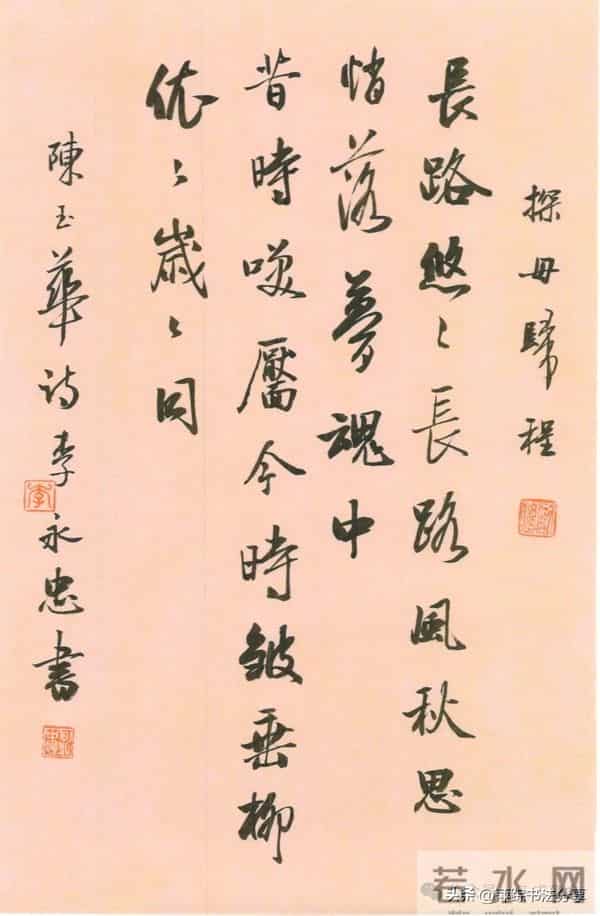 探母歸程
長路悠〻長路風秋思
悄落夢魂中
昔時咲靨今時皺垂柳
依〻歲〻同
陳玉華诗李永忠書
李
若水网
头条
书法分享